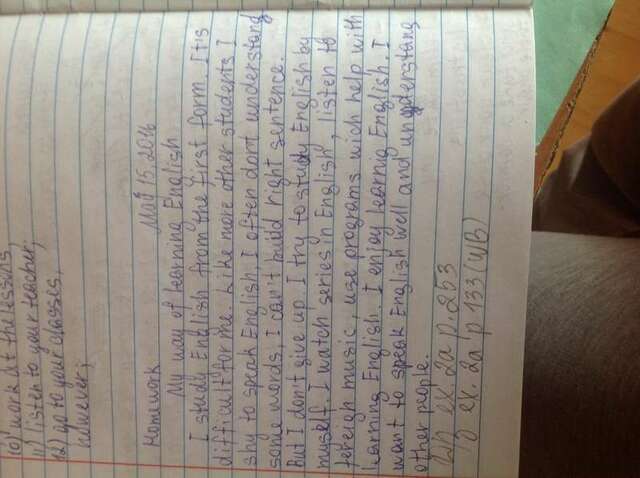 10) work at the lessons,
11) listen to your teacher;
12) go to your classes,
however;
Homework May 15, 2016
My way of learning English
I study English from the first form. It's
difficult for me. Like more other students I
shy to speak English, I often don't understand
some words, I can't build right sentence.
But I don't give up. I try to study English by
myself. I watch series in English, listen to
foreigh music, use programs wich help with
learning English. I enjoy learnig English. I
want to speak English well and understang
other people.
ex. 2a p. 253
ex. 2a p 133 (WB)